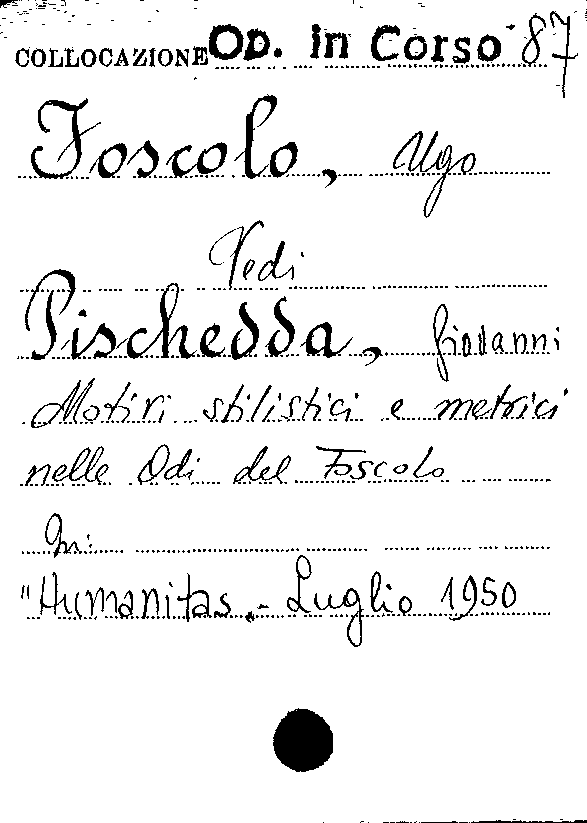 COLLOCAZIONE OD. in Corso 87
Foscolo, Ugo
Vedi
Pischedda, Giovanni
Motivi stilistici e metrici
nelle Odi del Foscolo
In:
"Humanitas„- Luglio 1950